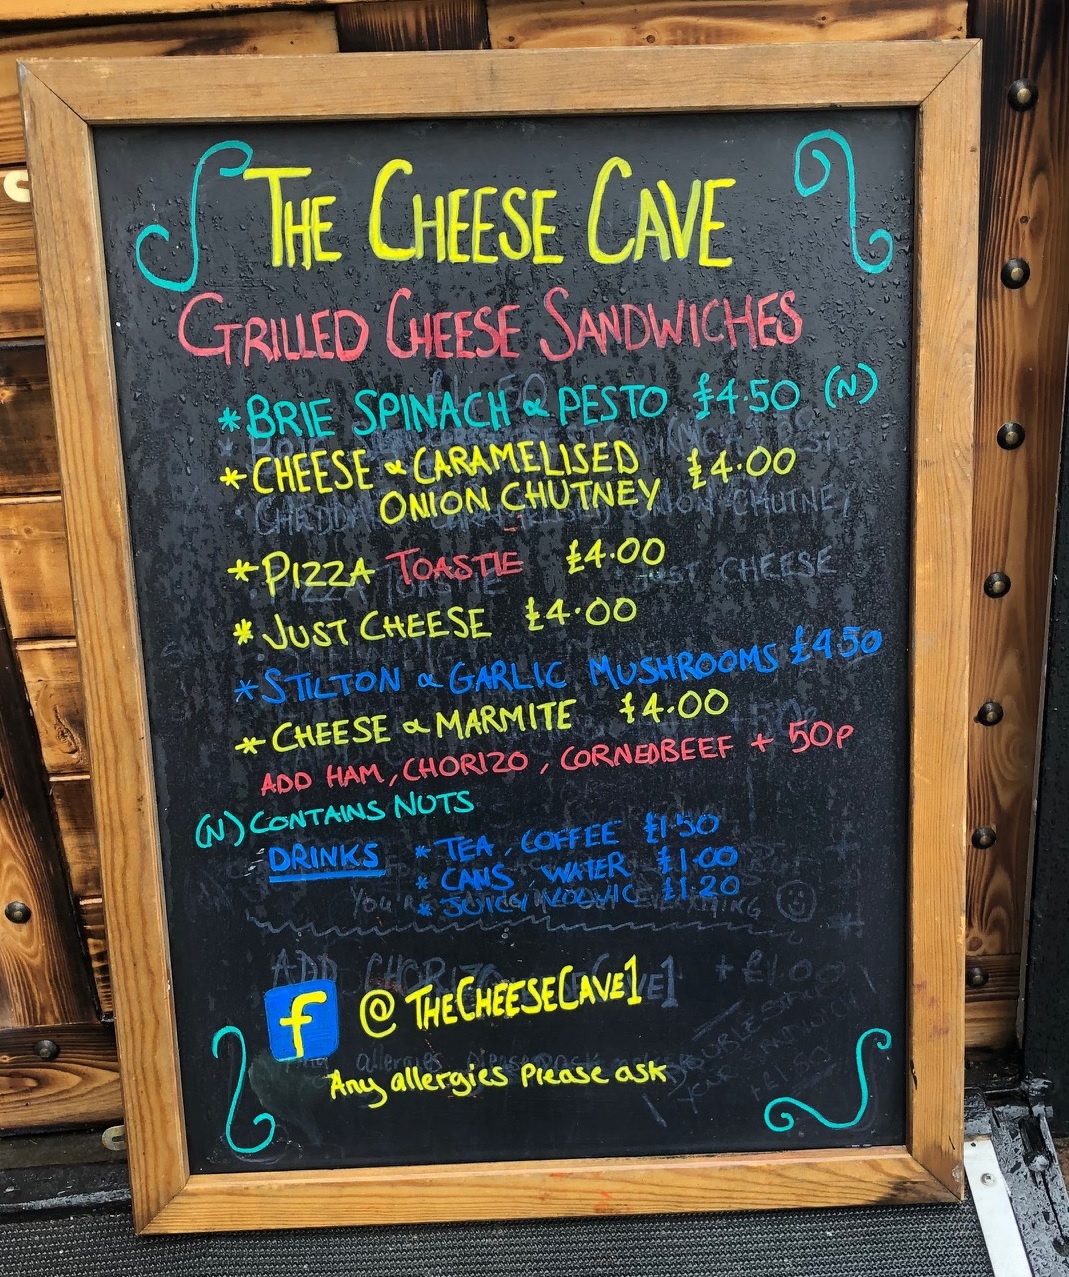 THE CHEESE CAVE
GRILLED CHEESE SANDWICHES
*BRIE SPINACH & PESTO £4.50 (N)
*CHEESE & CARAMELISED £4.00
ONION CHUTNEY
*PIZZA TOASTIE £4.00
*JUST CHEESE £4.00
*STILTON & GARLIC MUSHROOMS £4.50
*CHEESE & MARMITE £4.00
ADD HAM, CHORIZO, CORNEDBEEF + 50p
(N) CONTAINS NUTS
DRINKS * TEA, COFFEE £1.50
* CANS, WATER £1.00
* JUICY VOLVIC £1.20
f @THECHEESECAVE1
Any allergies Please ask